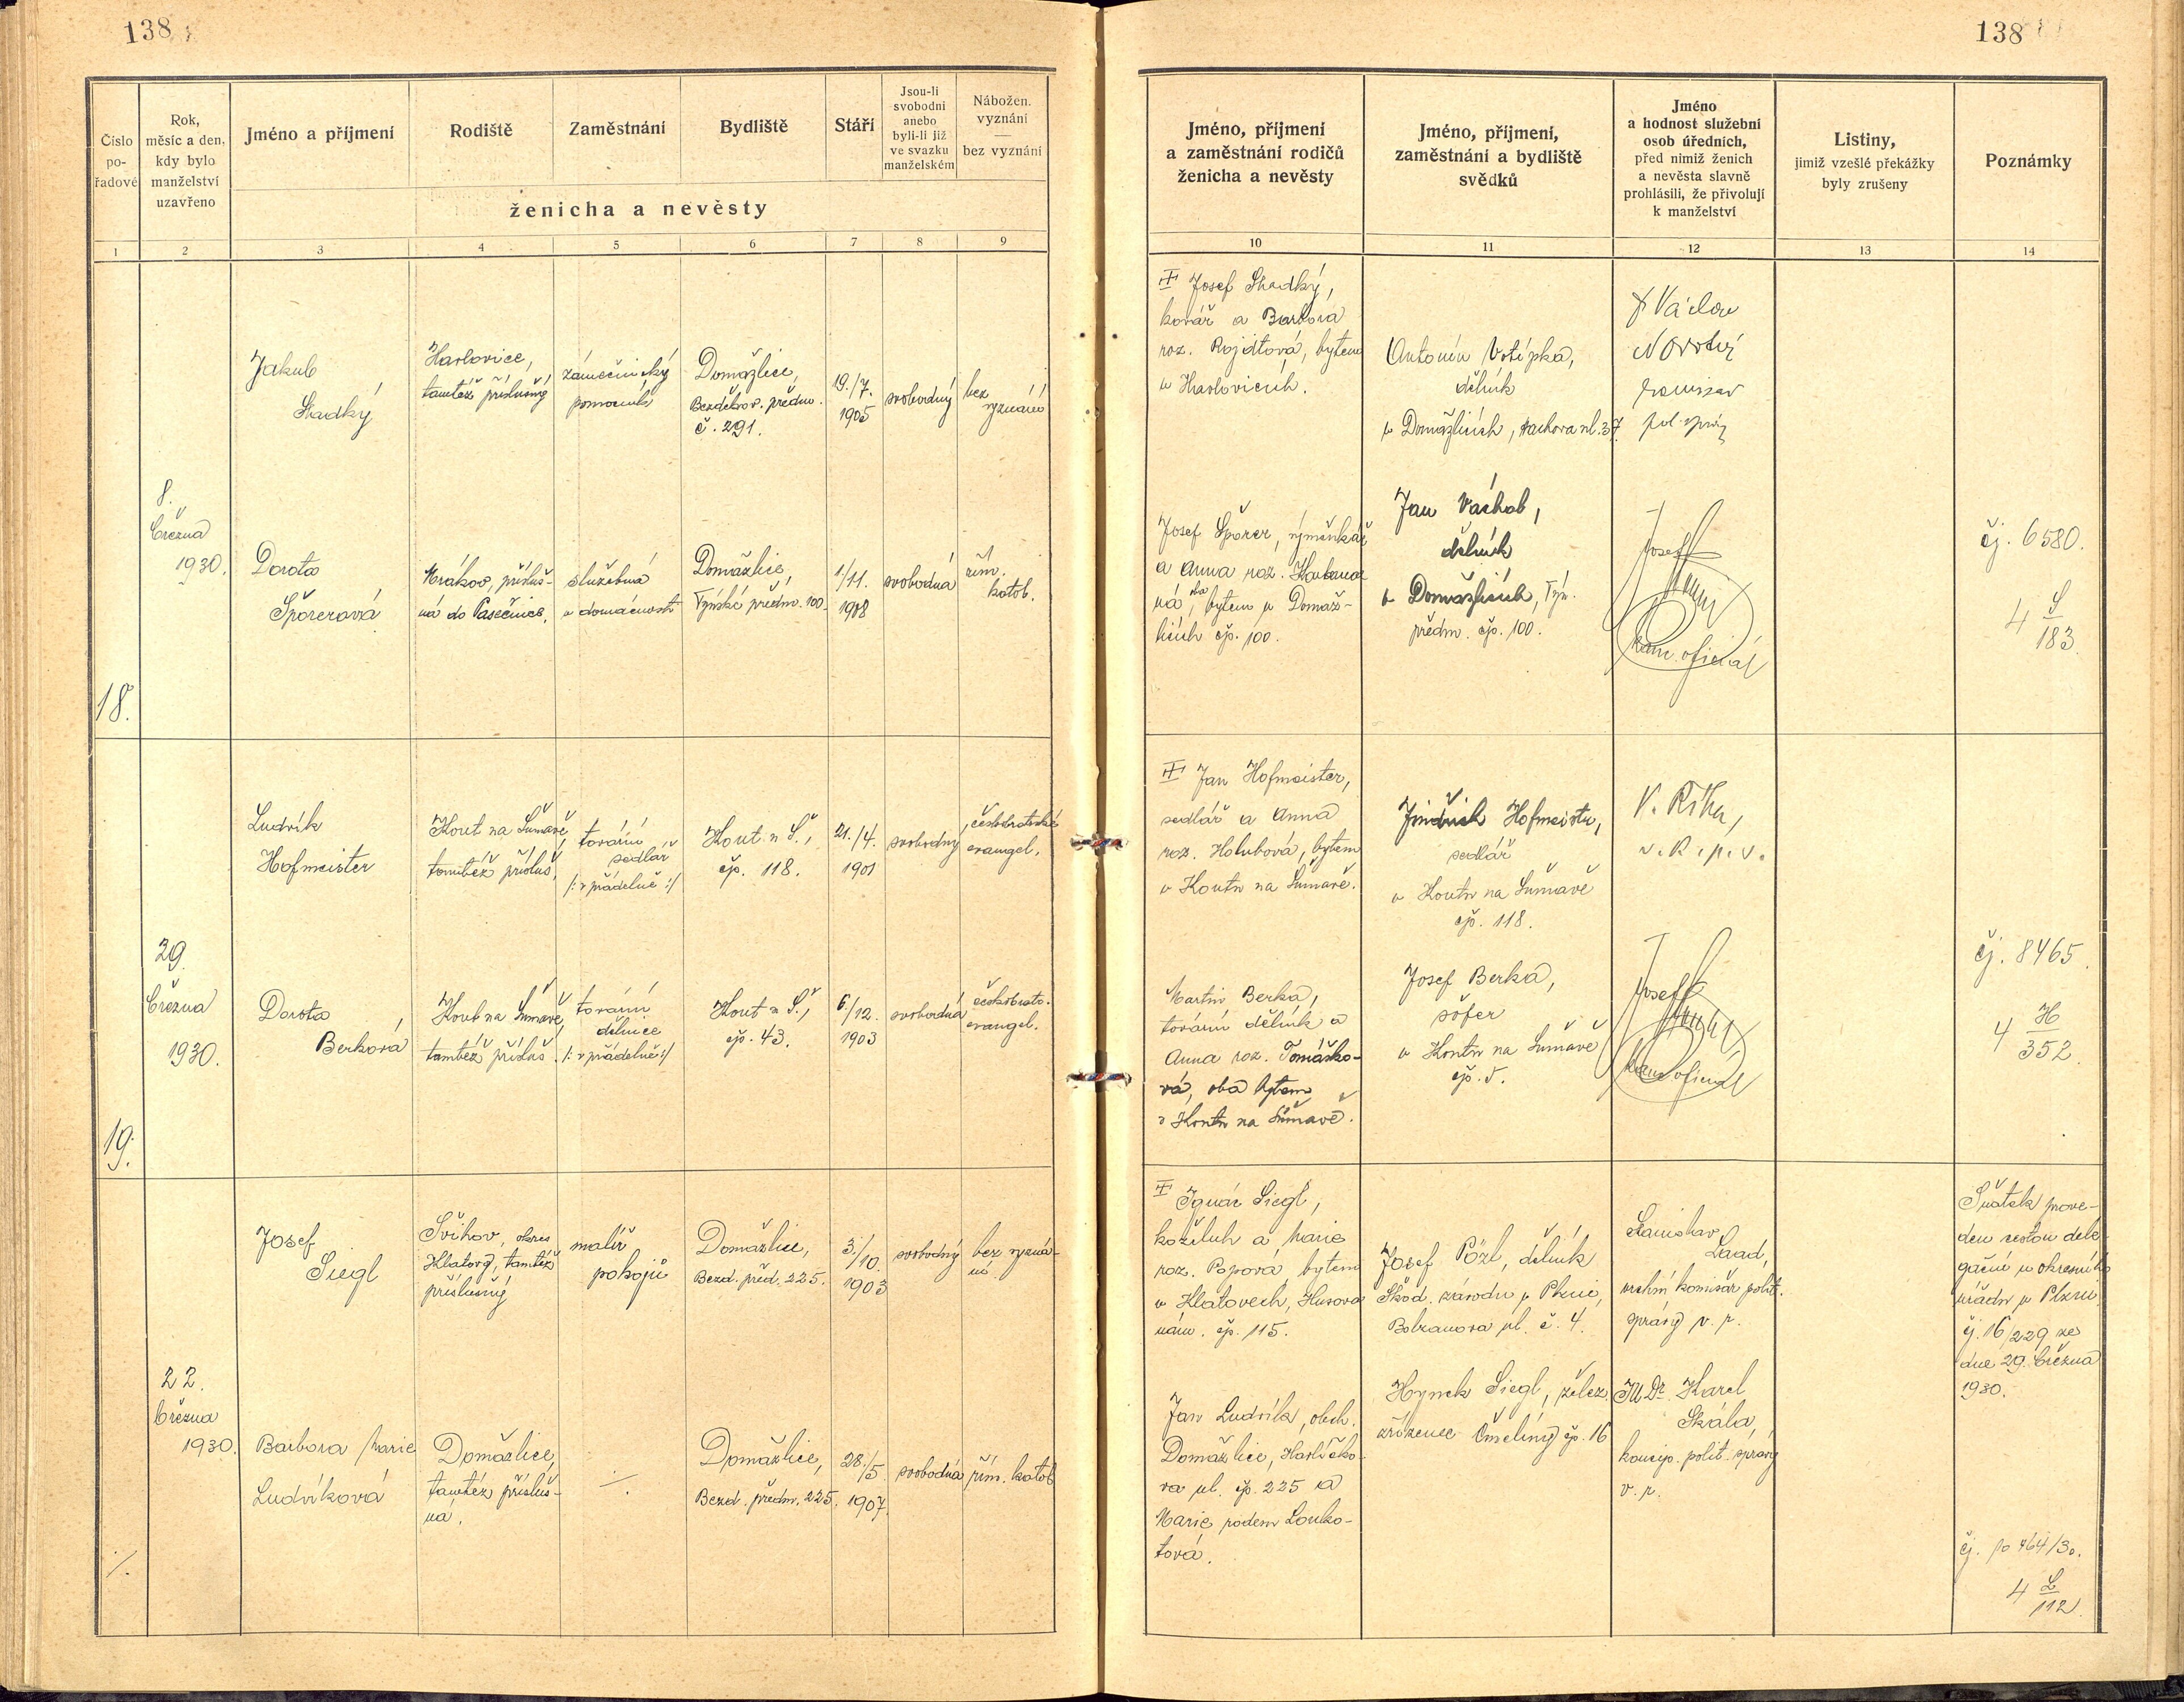 138
138
Číslo
po-
řadové
Rok,
měsíc a den,
kdy bylo
manželství
uzavřeno
Jméno a příjmení
Rodiště
Zaměstnání
Bydliště
Stáří
Jsou-li
svobodni
anebo
byli-li již
ve svazku
manželském
Nábožen.
vyznání
—
bez vyznání
ženicha a nevěsty
1 2 3 4 5 6 7 8 9
Jméno, příjmení
a zaměstnání rodičů
ženicha a nevěsty
Jméno, příjmení,
zaměstnání a bydliště
svědků
Jméno
a hodnost služební
osob úředních,
před nimiž ženich
a nevěsta slavně
prohlásili, že přivolují
k manželství
Listiny,
jimiž vzešlé překážky
byly zrušeny
Poznámky
10 11 12 13 14
18.
8.
března
1930.
Jakub
Sladký
Havlovice,
tamtéž příslušný
zámečnický
pomocník
Domažlice,
Bezděkov. předm.
č. 291.
19./7.
1905
svobodný
bez
vyznání
Dorota
Spörerová
Mrákov, přísluš-
ná do Pasečnice,
služebná
v domácnosti
Domažlice,
Týnské předm. 100.
1./11.
1908
svobodná
řím.
katol.
Josef Sladký,
kovář a Barbora
roz. Rojdtová, bytem
v Havlovicích.
Antonín Votípka,
dělník
v Domažlicích, ul. 37.
Václav
Novotný
komisař
pol. správy
Josef Spörer, výměnkář
a Anna roz.
ná, oba bytem v Domaž-
licích čp. 100.
Jan Váchal,
dělník
v Domažlicích, Týn.
předm. čp. 100.
Josef
kanc. oficiál
čj. 6580.
4 S
183.
19.
29.
března
1930.
Ludvík
Hofmeister
Kout na Šumavě,
tamtéž přísluš.
tovární
sedlář
/: v přádelně :/
Kout n. Š.,
čp. 118.
21./4.
1901
svobodný
českobratrské
evangel.
Dorota
Berková
Kout na Šumavě,
tamtéž přísluš.
tovární
dělnice
/: v přádelně :/
Kout n. Š.,
čp. 43.
6./12.
1903
svobodná
českobratr.
evangel.
Jan Hofmeister,
sedlář a Anna
roz. Holubová, bytem
v Koutu na Šumavě.
Jindřich Hofmeister,
sedlář
v Koutu na Šumavě
čp. 118.
V. Říha,
v. k. p. s.
Martin Berka,
tovární dělník a
Anna roz. Tomáško-
vá, oba bytem
v Koutu na Šumavě.
Josef Berka,
šofer
v Koutu na Šumavě
čp. 5.
Josef
kanc. oficiál
čj. 8465.
4 H
352.
/.
22.
března
1930.
Josef
Siegl
Švihov, okres
Klatovy, tamtéž
příslušný
malíř
pokojů
Domažlice,
Bezd. před. 225.
3./10.
1903
svobodný
bez vyzná-
ní.
Barbora Marie
Ludvíková
Domažlice,
tamtéž přísluš-
ná.
÷
Domažlice,
Bezd. předm. 225.
28./5.
1907.
svobodná
řím. katol.
Ignác Siegl,
koželuh a Marie
roz. Popová bytem
v Klatovech, Husovo
nám. čp. 115.
Josef Pözl, dělník
Škod. závodu v Plzni,
Bolzanova ul. č. 4.
Stanislav
Laad,
vrchní komisař polit.
správy v. r.
Jan Ludvík, obch.
Domažlice, Havlíčko-
va ul. čp. 225 a
Marie rodem Louko-
tová.
Hynek Siegl, želez.
zřízenec čp. 16
JUDr. Karel
Skála,
koncip. polit. správy
v. r.
Sňatek prove-
den cestou dele-
gační u okresního
úřadu v Plzni
čj. 16/229 ze
dne 29. března
1930.
čj. 10464/30.
4 L
112.